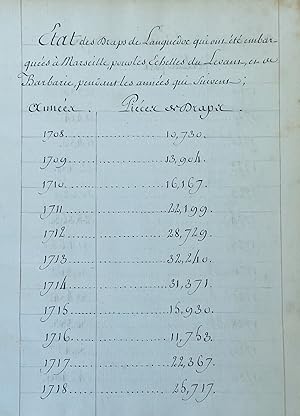 Etat des Draps de Languedoc qui ont été embar-
quées à Marseille, pour les Echelles du Levant, et de
Barbarie, pendant les années qui Suivent;
Années. Piéces de Draps.
1708. 10,730.
1709. 13,904.
1710. 16,167.
1711. 22,199.
1712. 28,729.
1713. 32,240.
1714. 31,371.
1715. 15,930.
1716. 11,753.
1717. 22,367.
1718. 25,717.